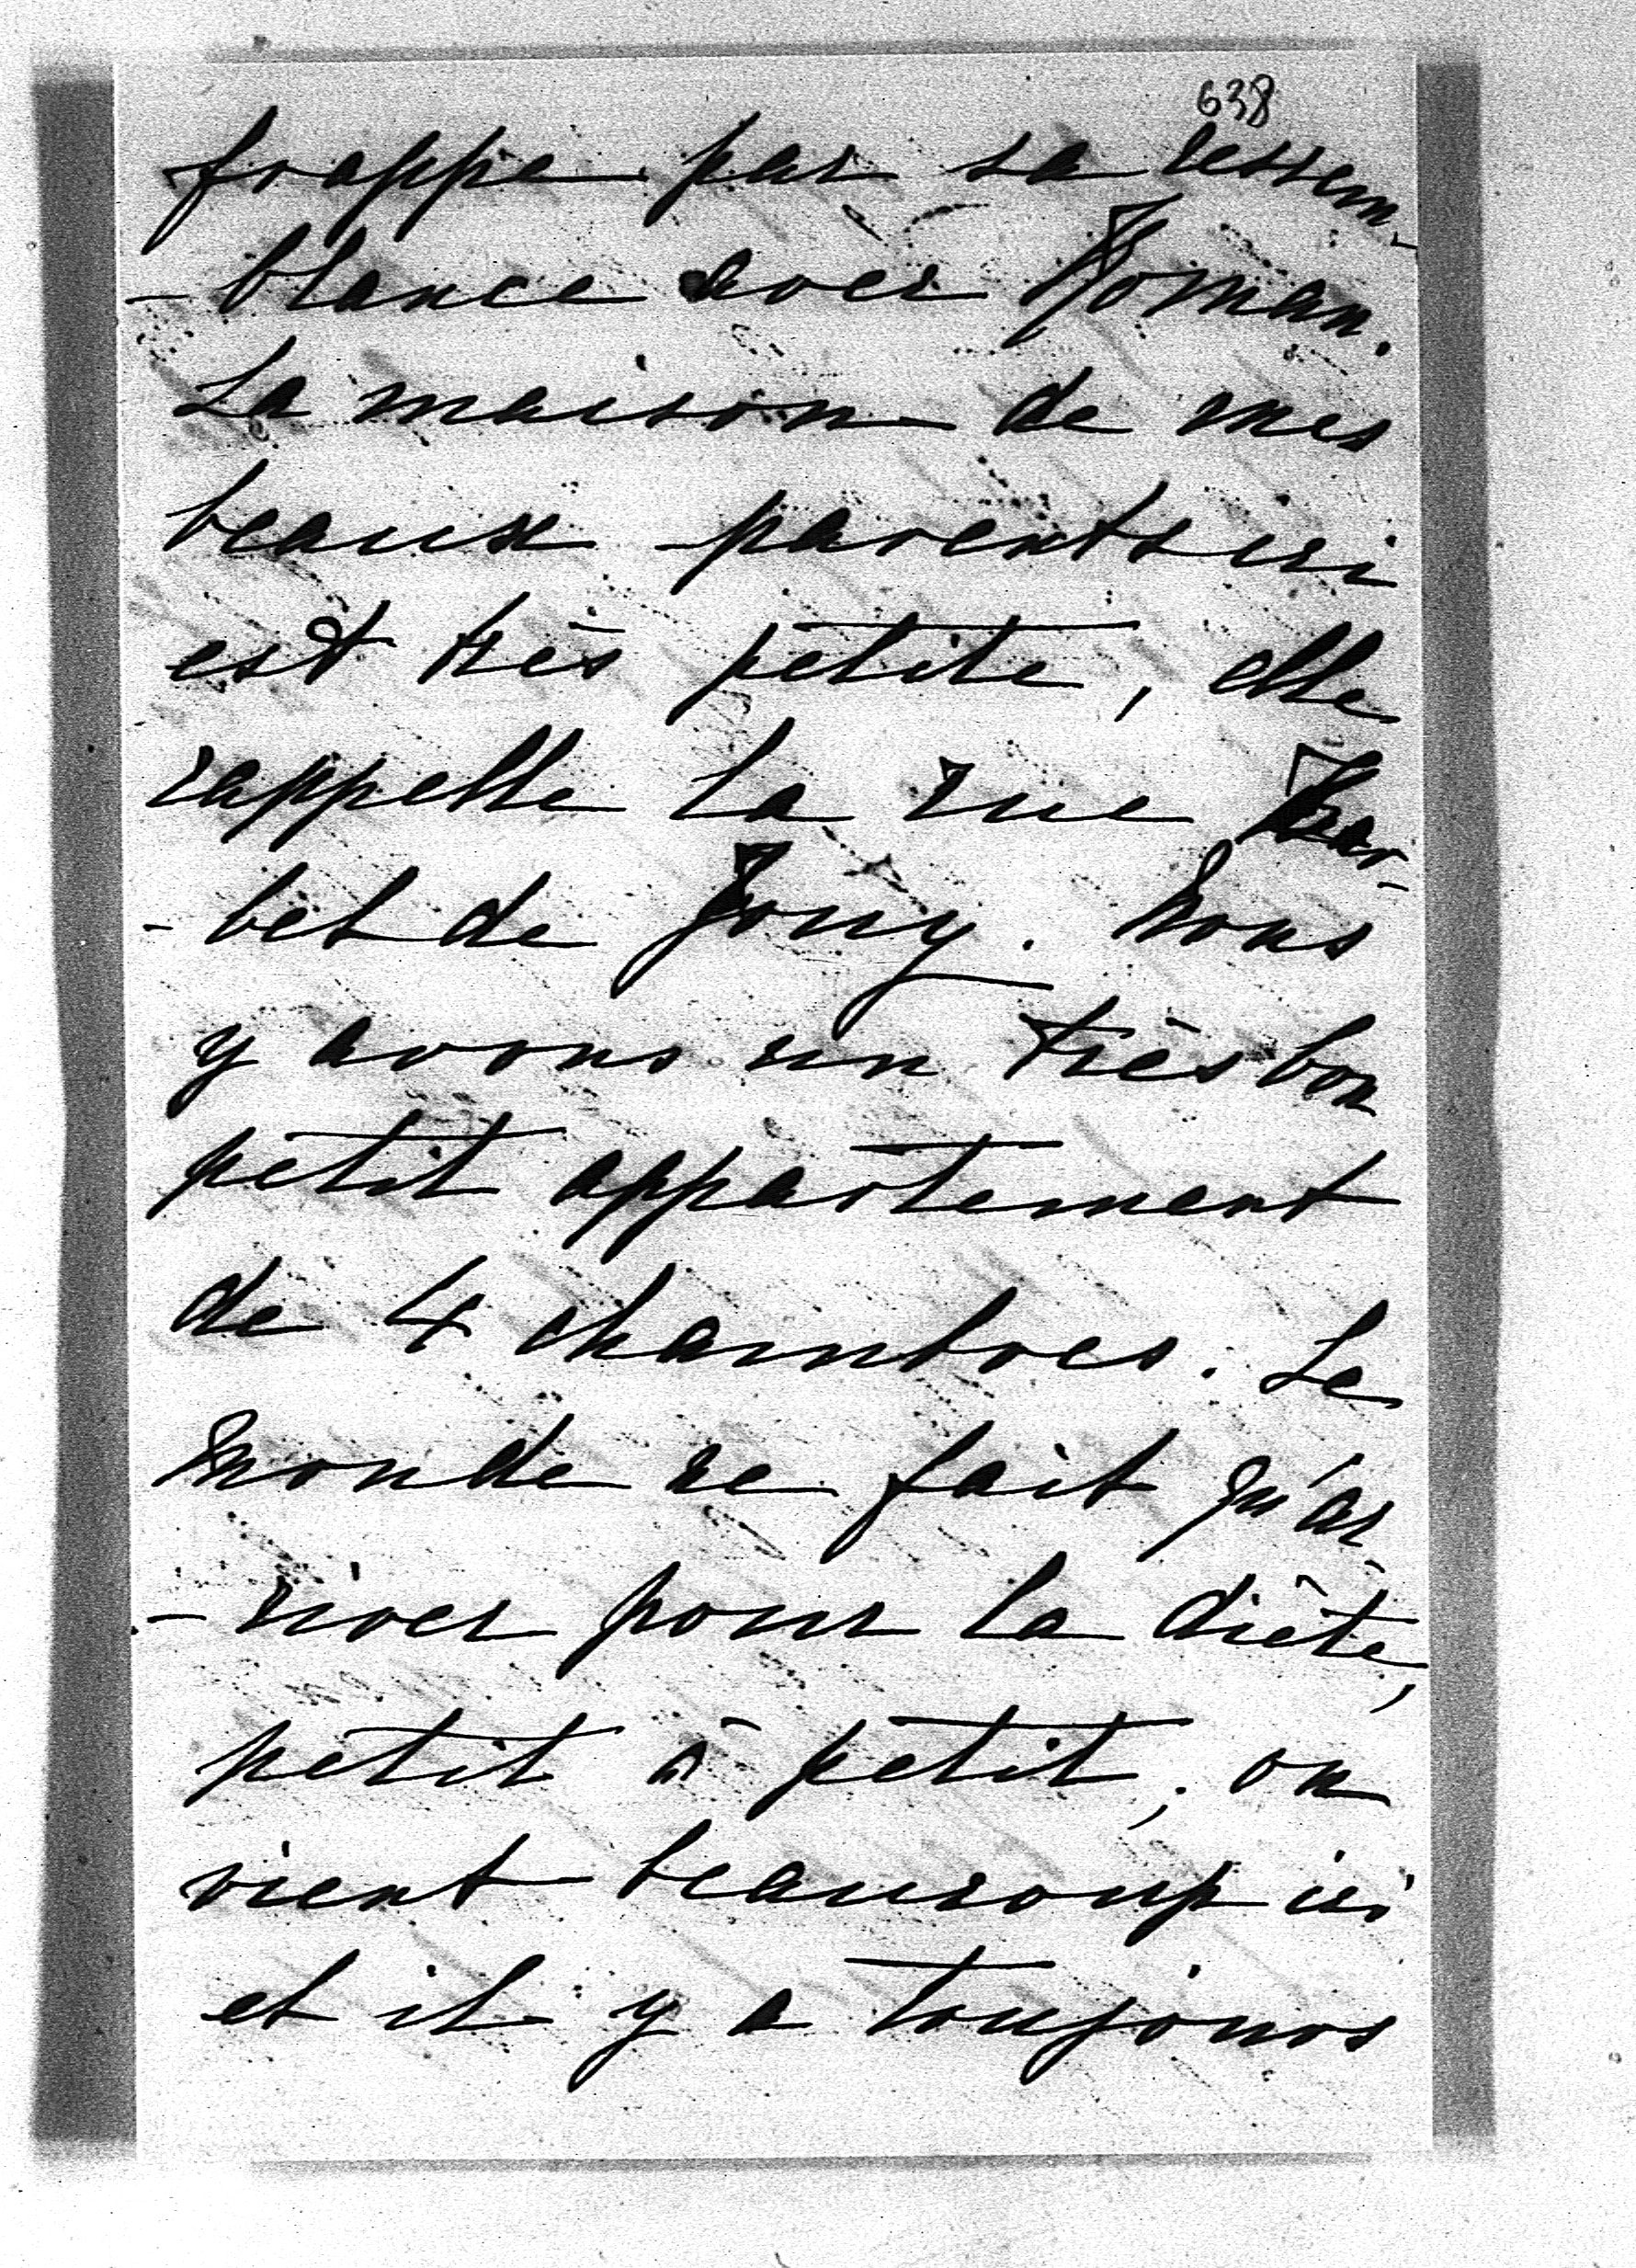 638
frappe par sa ressem-
-blance avec Roman.
La maison de mes
beaux parents ici
est très petite, elle
rappelle la rue Bar-
-bet de Jouy. Nous
y avons un très bon
petit appartement
de 4 chambres. Le
monde ne fait qu'ar-
-river pour la diète,
petit à petit, on
vient beaucoup ici
et il y a toujours